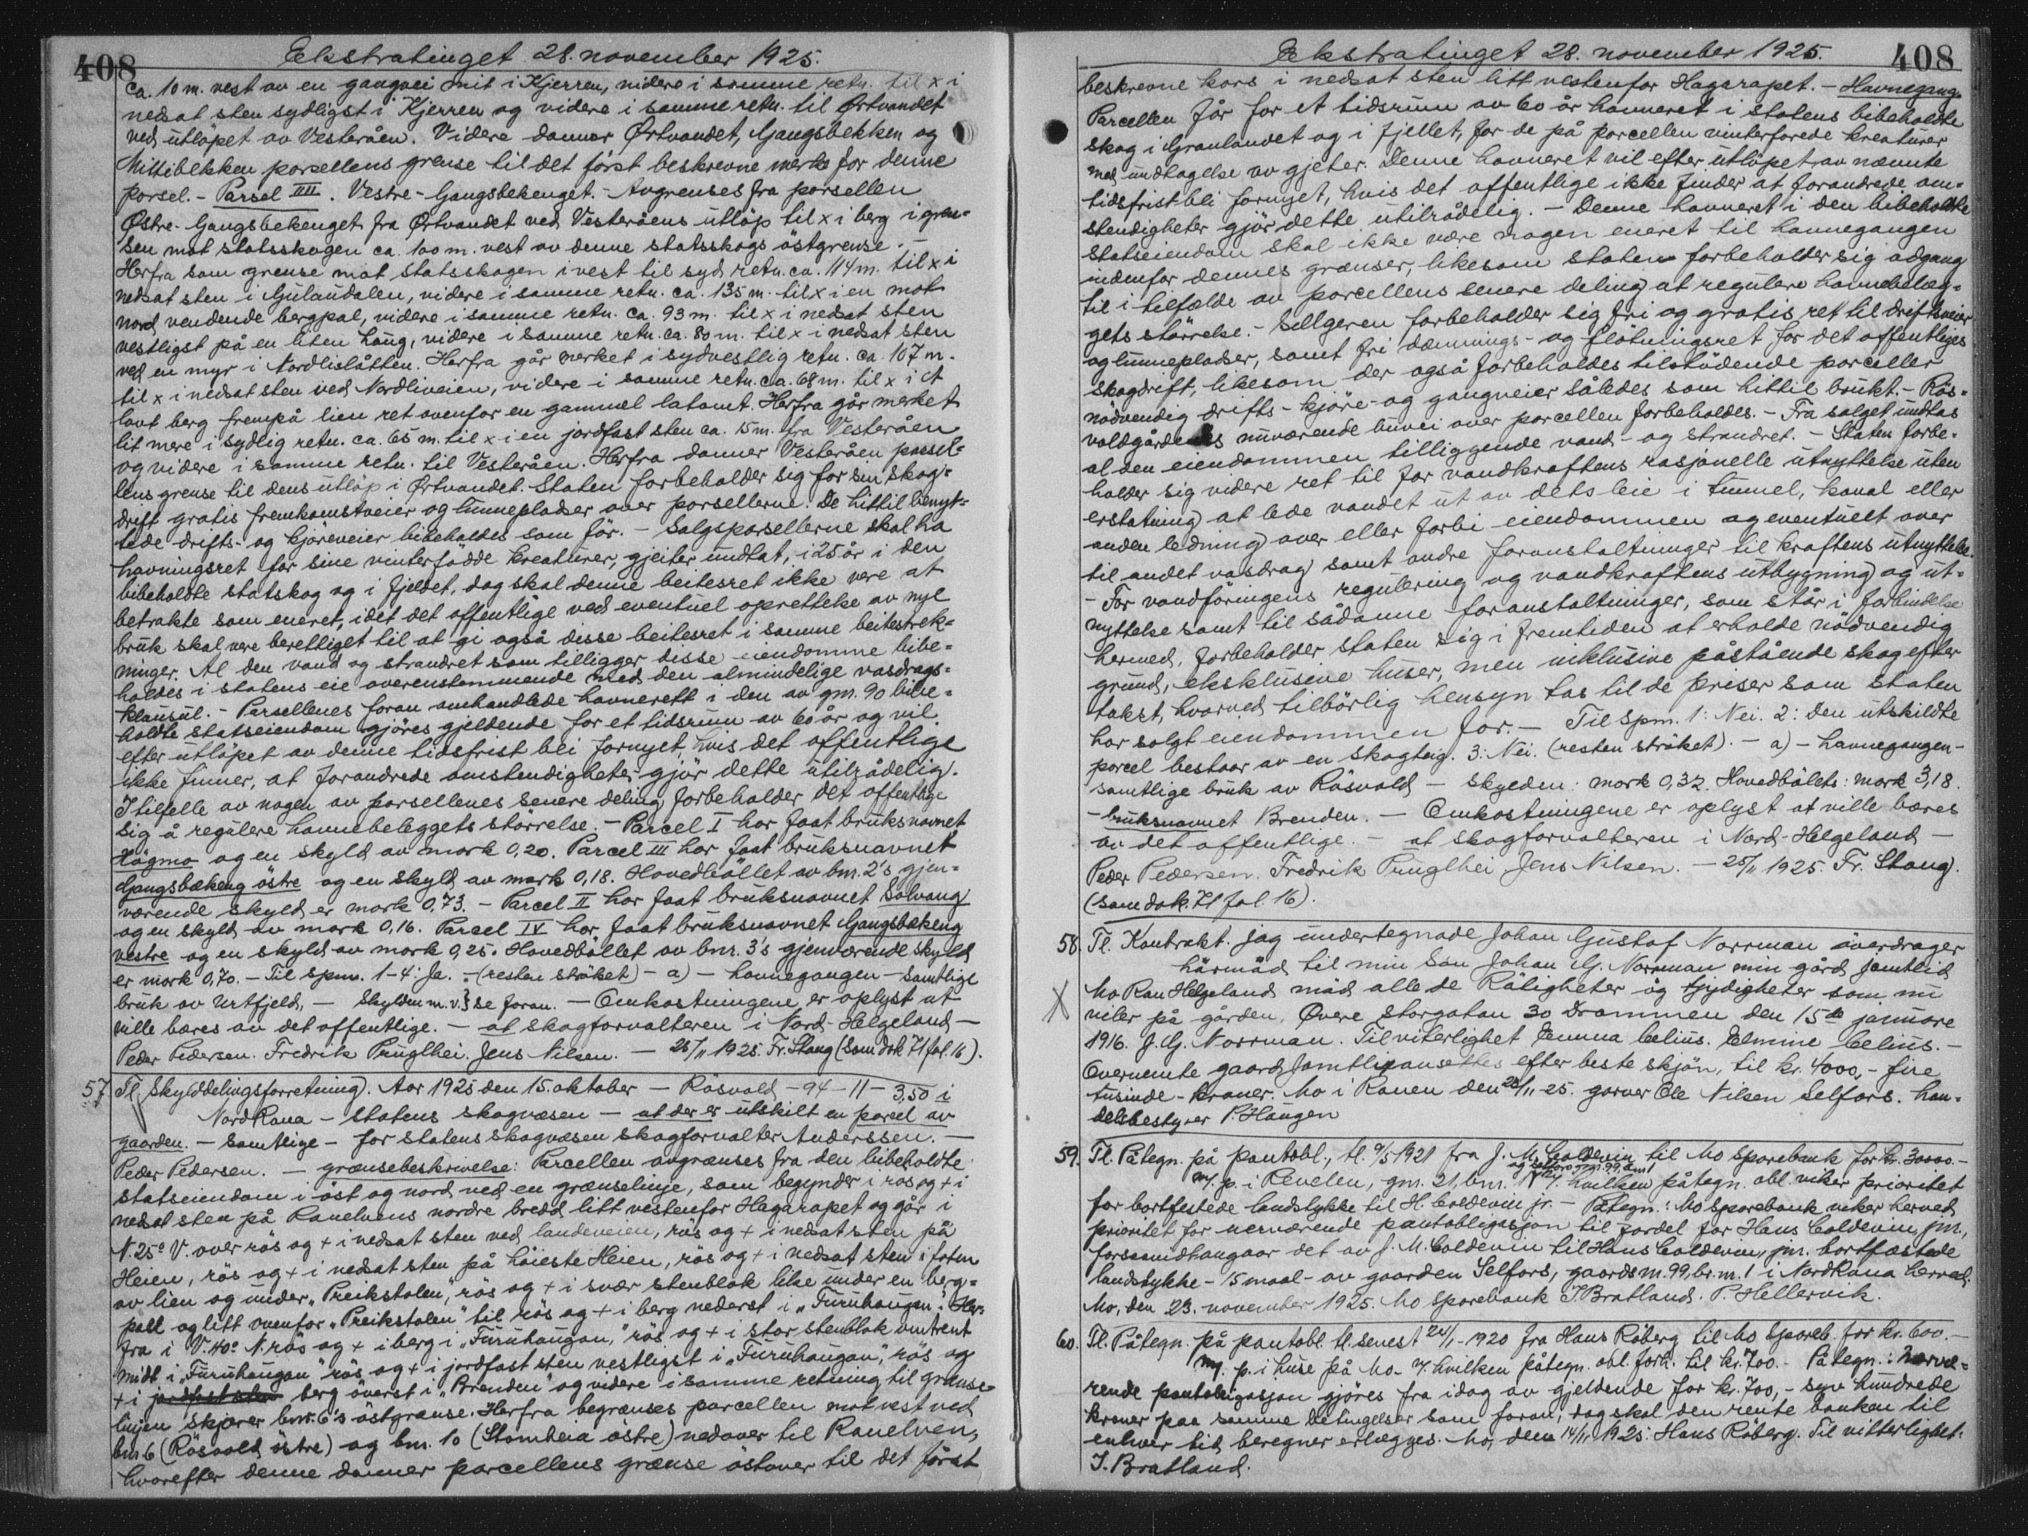 408
Ekstratinget 28. november 1925.
ca. 10 m. vest av en gangvei inst i Kjerren, videre i samme retn. til x i
nedsat sten sydligst i Kjerren og videre i samme retn. til Ørtvandet
ved utløpet av Vesteråen. Videre danner Ørtvandet, Gangsbekken og
Mittibekken porsellens grense til det først beskrevne merke for denne
porsel. - Parsel IIII. Vestre-Gangsbekenget. - Avgrenses fra porsellen
Østre-Gangsbekenget fra Ørtvandet ved Vesteråens utløp til x i berg i gren-
sen mot statsskogen ca. 100 m. vest av denne statsskogs østgrense. -
Herfra som grense mot statsskogen i vest til syd retn. ca. 114 m. til x i
nedsat sten i Gulaudalen, videre i samme retn. ca. 135 m. til x i en mot
nord vendende bergpal, videre i samme retn. ca. 93 m. til x i nedsat sten
vestligst på en liten haug, videre i samme retn. ca. 80 m. til x i nedsat sten
ved en myr i Nordlislåtten. Herfra går merket i sydvestlig retn. ca. 107 m.
til x i nedsat sten ved Nordliveien, videre i samme retn. ca. 68 m. til x i et
lavt berg frempå lien ret ovenfor en gammel latomt. Herfra går merket
lit mere i sydlig retn. ca. 65 m. til x i en jordfast sten ca. 15 m. fra Vesteråen
og videre i samme retn. til Vesteråen. Herfra danner Vesteråen porsel-
lens grense til dens utløp i Ørtvandet. Staten forbeholder sig for sin skog-
drift gratis fremkomstveier og lunnepladser over porsellerne. De hittil benyt-
tede drifts- og kjøreveier bibeholdes som før. - Salgsporsellerne skal ha
havningsret for sine vinterfødde kreaturer, gjeiter undtat, i 25 år i den
bibeholdte statskog og i fjeldet, dog skal denne beitesret ikke vere at
betrakte som eneret, idet det offentlige ved eventuel oprettelse av nye
bruk skal vere berettiget til at gi også disse beitesret i samme beitestrek-
ninger. Al den vand og strandret som tilligger disse eiendomme bibe-
holdes i statens eie overenstemmende med den almindelige vasdrags-
klausul. - Parsellenes foran omhandlede havnerett i den av gnr. 90 bibe-
holdte statseiendom gjøres gjeldende for et tidsrum av 60 år og vil
efter utløpet av denne tidsfrist bli fornyet, hvis det offentlige
ikke finner, at forandrede omstendigheter gjør dette utilrådelig.
I tilfelle av nogen av porsellenes senere deling forbeholder det offentlige
sig å regulere havnebeleggets størrelse. - Parcel I har faat bruksnavnet
Høgmo og en skyld av mark 0,20. Parcel III har faat bruksnavnet
Gangsbækeng østre og en skyld av mark 0,18. Hovedbøllet av bnr. 2's gjen-
værende skyld er mark 0,73. - Parcel II har faat bruksnavnet Solvang
og en skyld av mark 0,16. Parcel IV har faat bruksnavnet Gangsbækeng
vestre og en skyld av mark 0,25. Hovedbøllet av bnr. 3's gjenværende skyld
er mark 0,70. - Til spm. 1-4: Ja. - (resten strøket) - a) - havnegangen - samtlige
bruk av Urtfjeld, - Skylden m. v.} se foran. - Omkostningene er oplyst at
ville bæres av det offentlige. - at skogforvalteren i Nord-Helgeland -
Peder Pedersen. Fredrik Pruglhei. Jens Nilsen. - 25/11 1925. Fr. Stang (Som dok 71 fol. 16).
57 Tl. Skylddelingsforretning. Aar 1925 den 15. oktober - Røsvold - 94 - 11 - 3,50 i
Nord Rana - Statens skogvæsen - at der er utskilt en parcel av
gaarden. - Samtlige - for statens skogvæsen skogforvalter Anderssen. -
Peder Pedersen. - grænsebeskrivelse: Parcellen avgrænses fra den bibeholdte
statseiendom i øst og nord ved en grænselinje, som begynder i røs og + i
nedsat sten på Ranelvens nordre bredd litt vestenfor Hagarapet og går i
N. 25° V. over røs og + i nedsat sten ved landeveien, røs og + i nedsat sten på
Heien, røs og + i nedsat sten på høieste Heien, røs og + i nedsat sten i foten
av lien og under „Preikstolen", røs og + i svær stenblok like under en berg-
pall og litt ovenfor „Preikstolen" til røs og + i berg nederst i „Furuhaugen". Her-
fra i V. 40° N. røs og + i berg i „Furuhaugan," røs og + i stor stenblok omtrent
midt i „Furuhaugan" røs og + i jordfast sten vestligst i „Furuhaugan", røs og
+ i jordfast sten berg øverst i „Brenden" og videre i samme retning til grænse-
linjen skjærer bnr. 6's østgrænse. Herfra begrænses parcellen mot vest ved
bnr. 6 (Røsvold østre) og bnr. 10 (Stomheia østre) nedover til Ranelven,
hvorefter denne danner parcellens grænse østover til det først
408
Ekstratinget 28. november 1925.
beskrevne kors i nedsat sten litt vestenfor Hagarapet. - Havnegang.
Parcellen får for et tidsrum av 60 år havneret i statens bibeholdte
skog i Grønlandet og i fjellet, for de på parcellen vinterforede kreaturer
med undtagelse av gjeter. Denne havneret vil efter utløpet av nævnte
tidsfrist bli fornyet, hvis det offentlige ikke finder at forandrede om-
stendigheter gjør dette utilrådelig. - Denne havneret i den bibeholdte
statseiendom skal ikke være nogen eneret til havnegangen
indenfor dennes grænser, likesom staten forbeholder sig adgang
til i tilfælde av parcellens senere deling at regulere havnebelæg-
gets størrelse. - Sælgeren forbeholder sig fri og gratis ret til driftsveier
og lunnepladser, samt fri dæmnings- og fløtningsret for det offentliges
skogdrift, likesom der også forbeholdes tilstødende parceller
nødvendig drifts- kjøre- og gangveier således som hittil brukt. - Røs-
voldgårdenes nuværende buvei over parcellen forbeholdes. - Fra salget undtas
al den eiendommen tilliggende vand- og strandret. - Staten forbe-
holder sig videre ret til for vandkraftens rasjonelle utnyttelse uten
erstatning at lede vandet ut av dets leie i tunnel, kanal eller
anden ledning over eller forbi eiendommen og eventuelt over
til andet vasdrag samt andre foranstaltninger til kraftens utnyttelse.
- For vandføringens regulering og vandkraftens utbygning og ut-
nyttelse samt til sådanne foranstaltninger, som står i forbindelse
hermed, forbeholder staten sig i fremtiden at erholde nødvendig
grund, eksklusive huser, men inklusive påstående skog efter
takst, hvorved tilbørlig hensyn tas til de priser som staten
har solgt eiendommen for. - Til Spm. 1: Nei. 2: den utskildte
parcel bestaar av en skogteig. 3: Nei. (resten strøket). - a) - havnegangen -
samtlige bruk av Røsvold - skylden: mark 0,32. Hovedbølets: mark 3,18.
- bruksnavnet Brenden. - Omkostningene er oplyst at ville bæres
av det offentlige. - at skogforvalteren i Nord-Helgeland -
Peder Pedersen. Fredrik Pruglhei Jens Nilsen. - 25/11 1925. Fr. Stang.
(Som dok. 71 fol 16).
58 Tl. Kontrakt. Jag undertegnade Johan Gustaf Norrman överdrager
härmäd til min Son Johan G. Norrman min gård Jamtlid
X Mo Ran Helgeland mäd alle de Rätigheter og tydigheter som nu
viler på gården. Øvere Storgatan 30 Drammen den 15de januare
1916. J. G. Norrman. Til viterlighet Emma Celius. Elmine Celius. -
Overnemte gaard Jamtli ansettes efter beste skjøn, til kr. 4000,- fire
tusinde - kroner. Mo i Ranen den 28/11-25. garver Ole Nilsen Selfors. han-
delsbestyrer P. Haugen
59. Tl. Påtegn. på pantobl., tl. 9/5 1921 fra J. M. Coldevin til Mo Sparebank for kr. 30000.-
og Selfors gnr. 99, bnr. 1
m/ p. i Revelen, gnr. 21, bnr. 1 v/ hvilken påtegn. obl. viker prioritet
for bortfestede landstykke til H. Coldevin jr. - Påtegn.: Mo Sparebank viker herved
prioritet for nerværende pantobligasjon til fordel for Hans Coldevin, jnr.,
forsaavidt angaar det av J. M. Coldevin til Hans Coldevin, jnr. bortfæstede
landstykke - 15 maal - av gaarden Selfors, gaards nr. 99, br. nr. 1 i Nord Rana herred.
Mo, den 23. november 1925. Mo Sparebank J. Bratland. P. Hellervik.
60. Tl. Påtegn. på pantobl. tl. senest 24/1-1920 fra Hans Røberg til Mo Spareb. for kr. 600.-
m/ p. i huse på Mo. v/ hvilken påtegn. obl. forh. til kr. 700. - Påtegn.: Nærvæ-
rende pantobligasjon gjøres fra idag av gjeldende for kr. 700,- syv hundrede
kroner paa samme betingelser som foran, dog skal den rente banken til
enhver tid beregner erlegges. Mo, den 14/11 1925: Hans Røberg. Til vitterlighet:
J. Bratland.